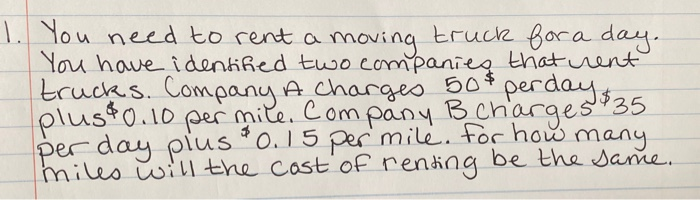 1. You need to rent a moving truck for a day.
You have identified two companies that rent
trucks. Company A charges 50$ per day,
plus $0.10 per mile. Company B charges $35
per day plus $0.15 per mile. For how many
miles will the cost of renting be the same.